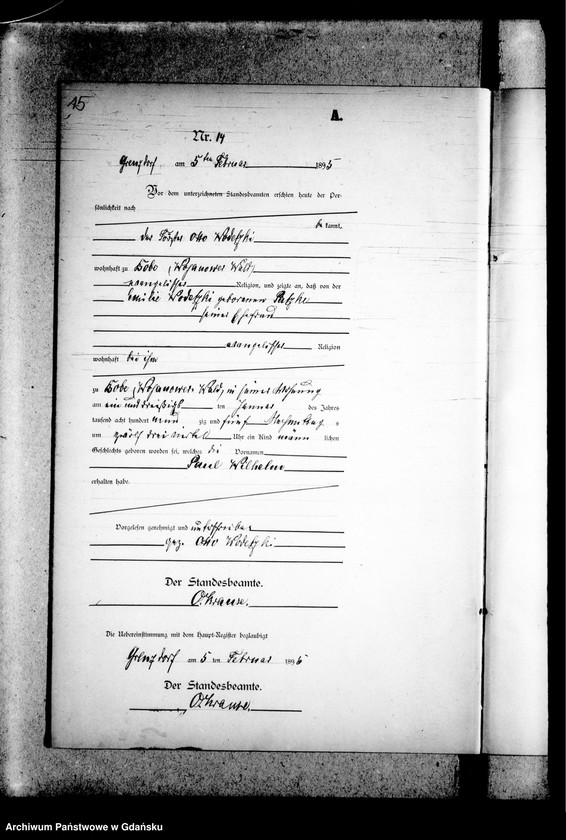 45
A.
Nr. 14
Grenzdorf am 5ten Februar 1895
Vor dem unterzeichneten Standesbeamten erschien heute der Per-
sönlichkeit nach
be kannt,
der Otto Wodetzki
wohnhaft zu Bobe, Wojanower Wald,
evangelischer Religion, und zeigte an, daß von der
Emilie Wodetzki geborenen
seiner Ehefrau
evangelischer Religion
wohnhaft bei ihm
zu Bobe, Wojanower Wald, in seiner Wohnung
am ein und dreißigsten Januar des Jahres
tausend acht hundert neun zig und fünf Nachmittags
um zwölf drei viertel Uhr ein Kind männ lichen
Geschlechts geboren worden sei, welches die Vornamen
Paul Wilhelm
erhalten habe.
Vorgelesen genehmigt und unterschrieben
gez. Otto Wodetzki
Der Standesbeamte.
O. Krause.
Die Uebereinstimmung mit dem Haupt-Register beglaubigt
Grenzdorf am 5 ten Februar 1895
Der Standesbeamte.
O. Krause.
Archiwum Państwowe w Gdańsku